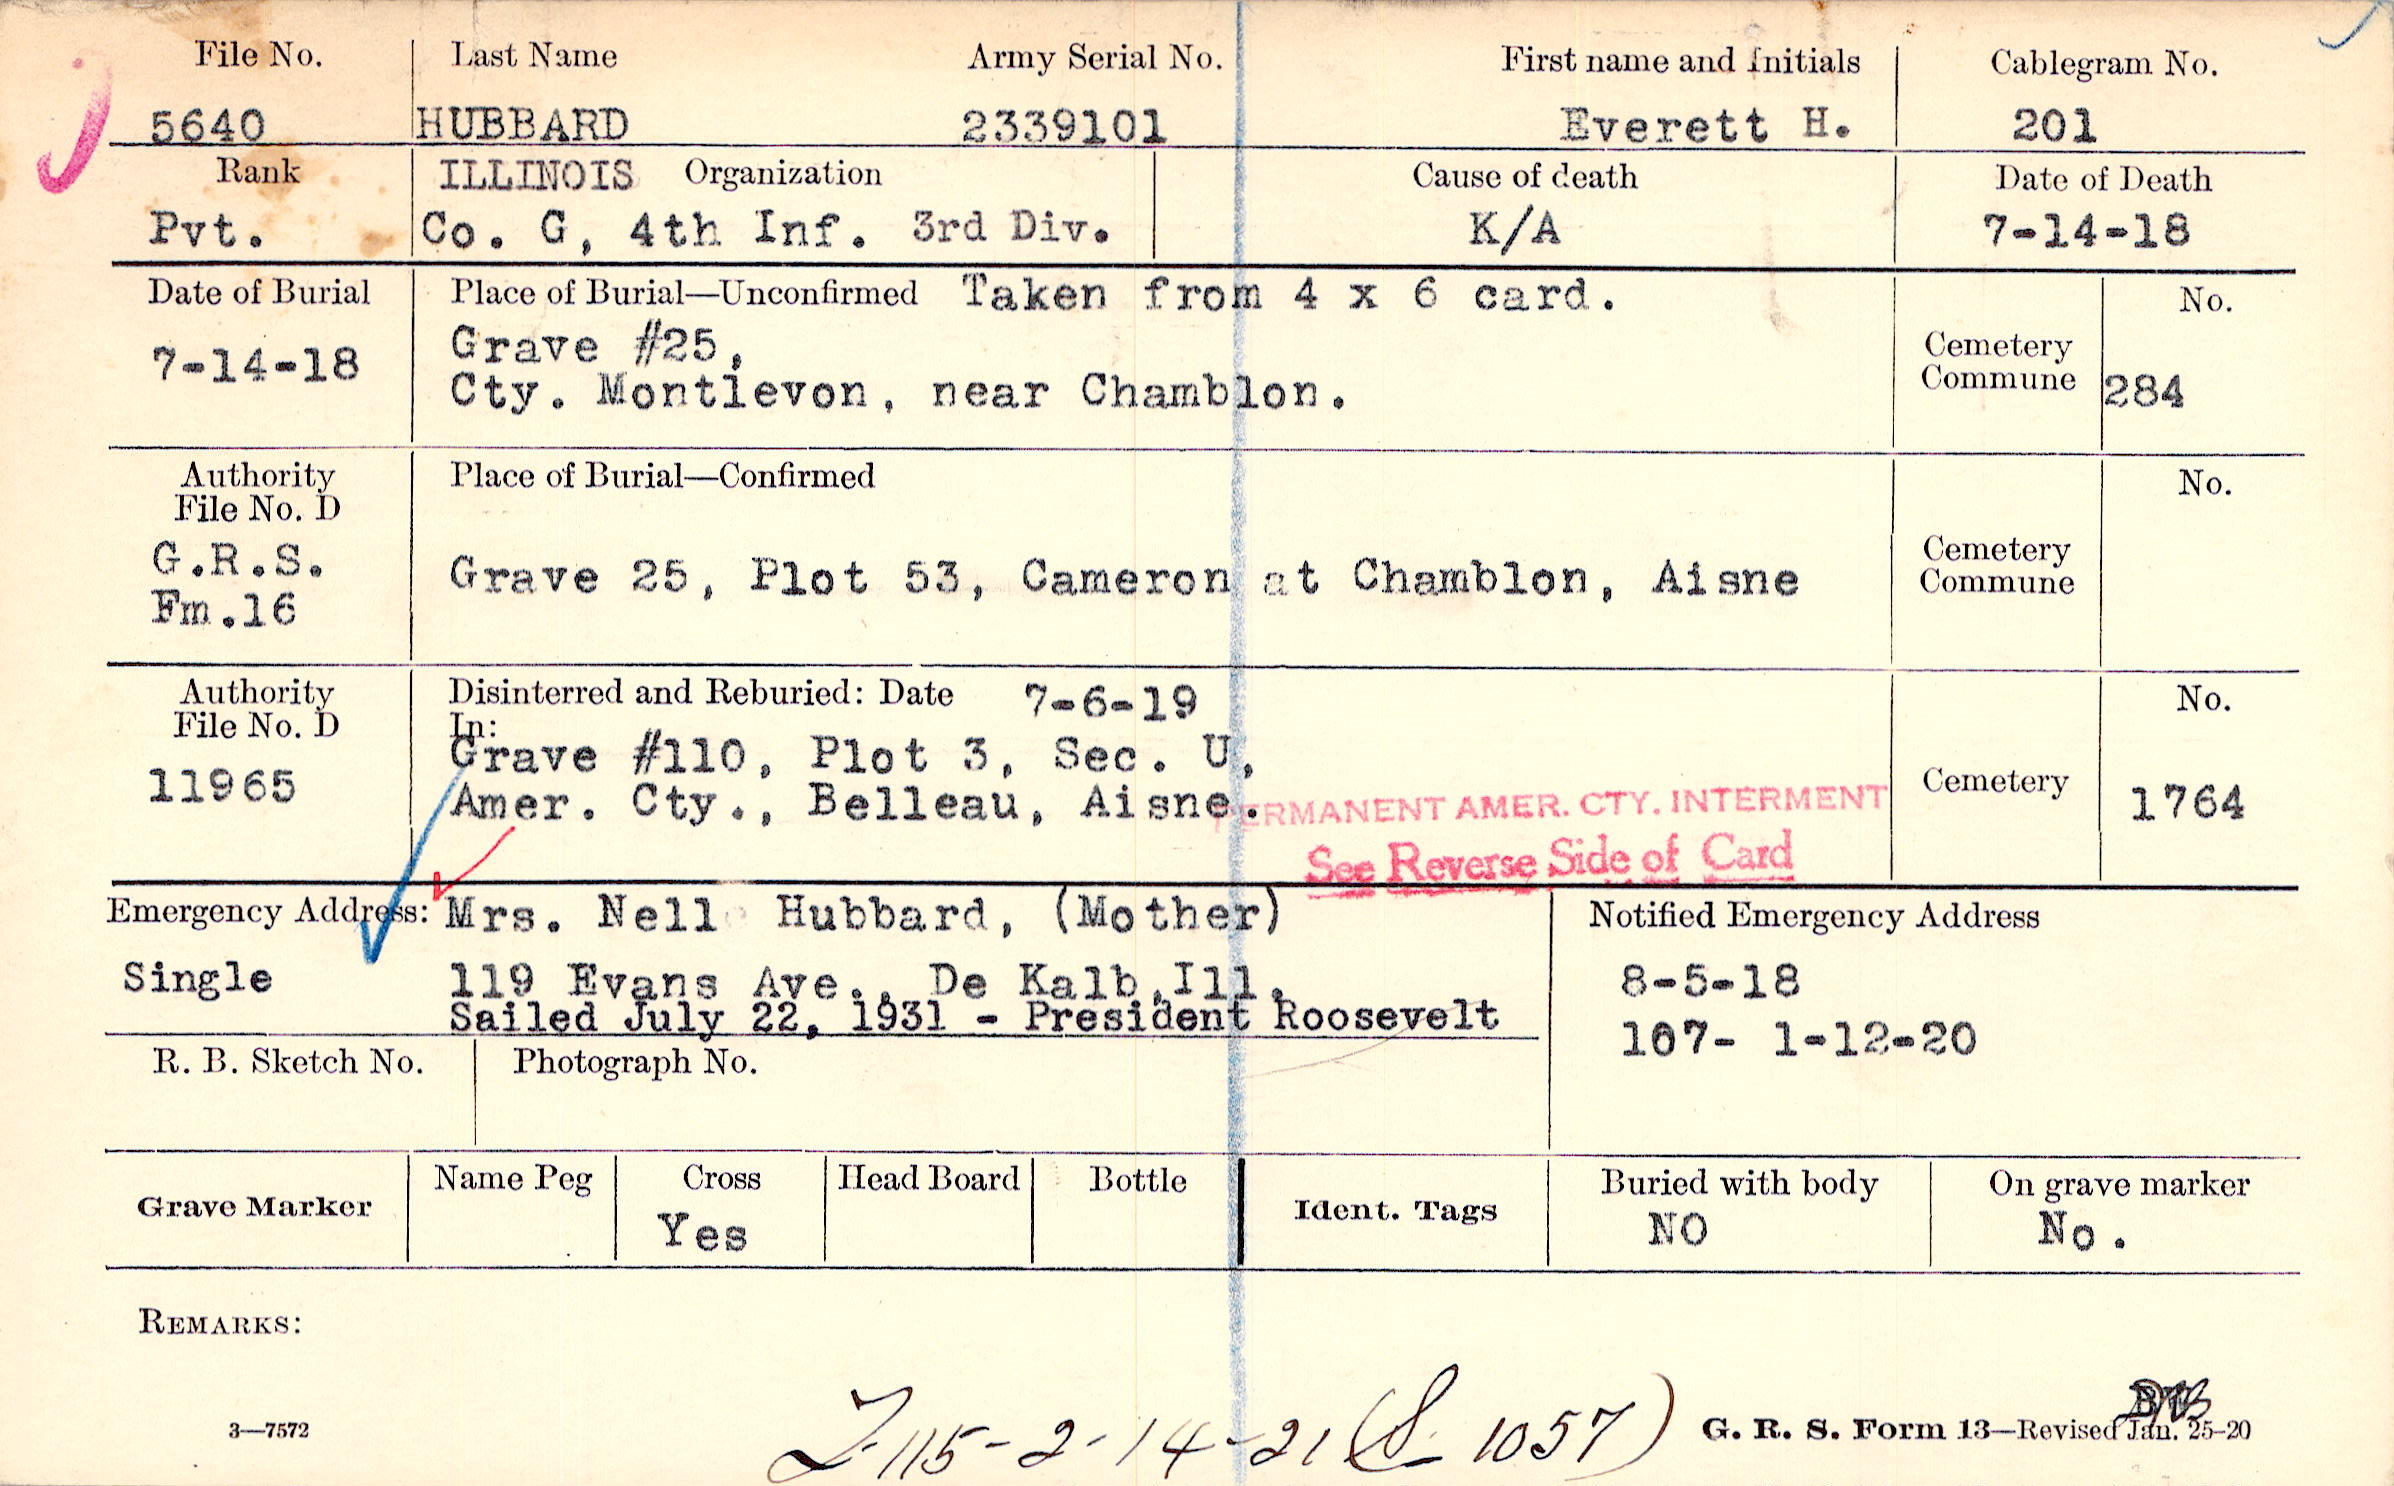 File No. Last Name Army Serial No. First name and Initials Cablegram No.
5640 HUBBARD 2339101 Everett H. 201
Rank ILLINOIS Organization Cause of death Date of Death
Pvt. Co. G, 4th Inf. 3rd Div. K/A 7-14-18
Date of Burial Place of Burial—Unconfirmed Taken from 4 x 6 card. No.
7-14-18 Grave #25, Cemetery
Cty. Montlevon, near Chamblon. Commune 284
Authority Place of Burial—Confirmed No.
File No. D
G.R.S. Grave 25, Plot 53, Cameron at Chamblon, Aisne Cemetery
Fm.16 Commune
Authority Disinterred and Reburied: Date 7-6-19 No.
File No. D In:
11965 Grave #110, Plot 3, Sec. U, Cemetery
Amer. Cty., Belleau, Aisne. PERMANENT AMER. CTY. INTERMENT 1764
See Reverse Side of Card
Emergency Address: Mrs. Nell Hubbard, (Mother) Notified Emergency Address
Single 119 Evans Ave., De Kalb,Ill. 8-5-18
Sailed July 22, 1931 - President Roosevelt 107- 1-12-20
R. B. Sketch No. Photograph No.
Grave Marker Name Peg Cross Head Board Bottle Ident. Tags Buried with body On grave marker
Yes NO No.
REMARKS:
3—7572 115-2-14-21 (S. 1057) G. R. S. Form 13—Revised Jan. 25-20